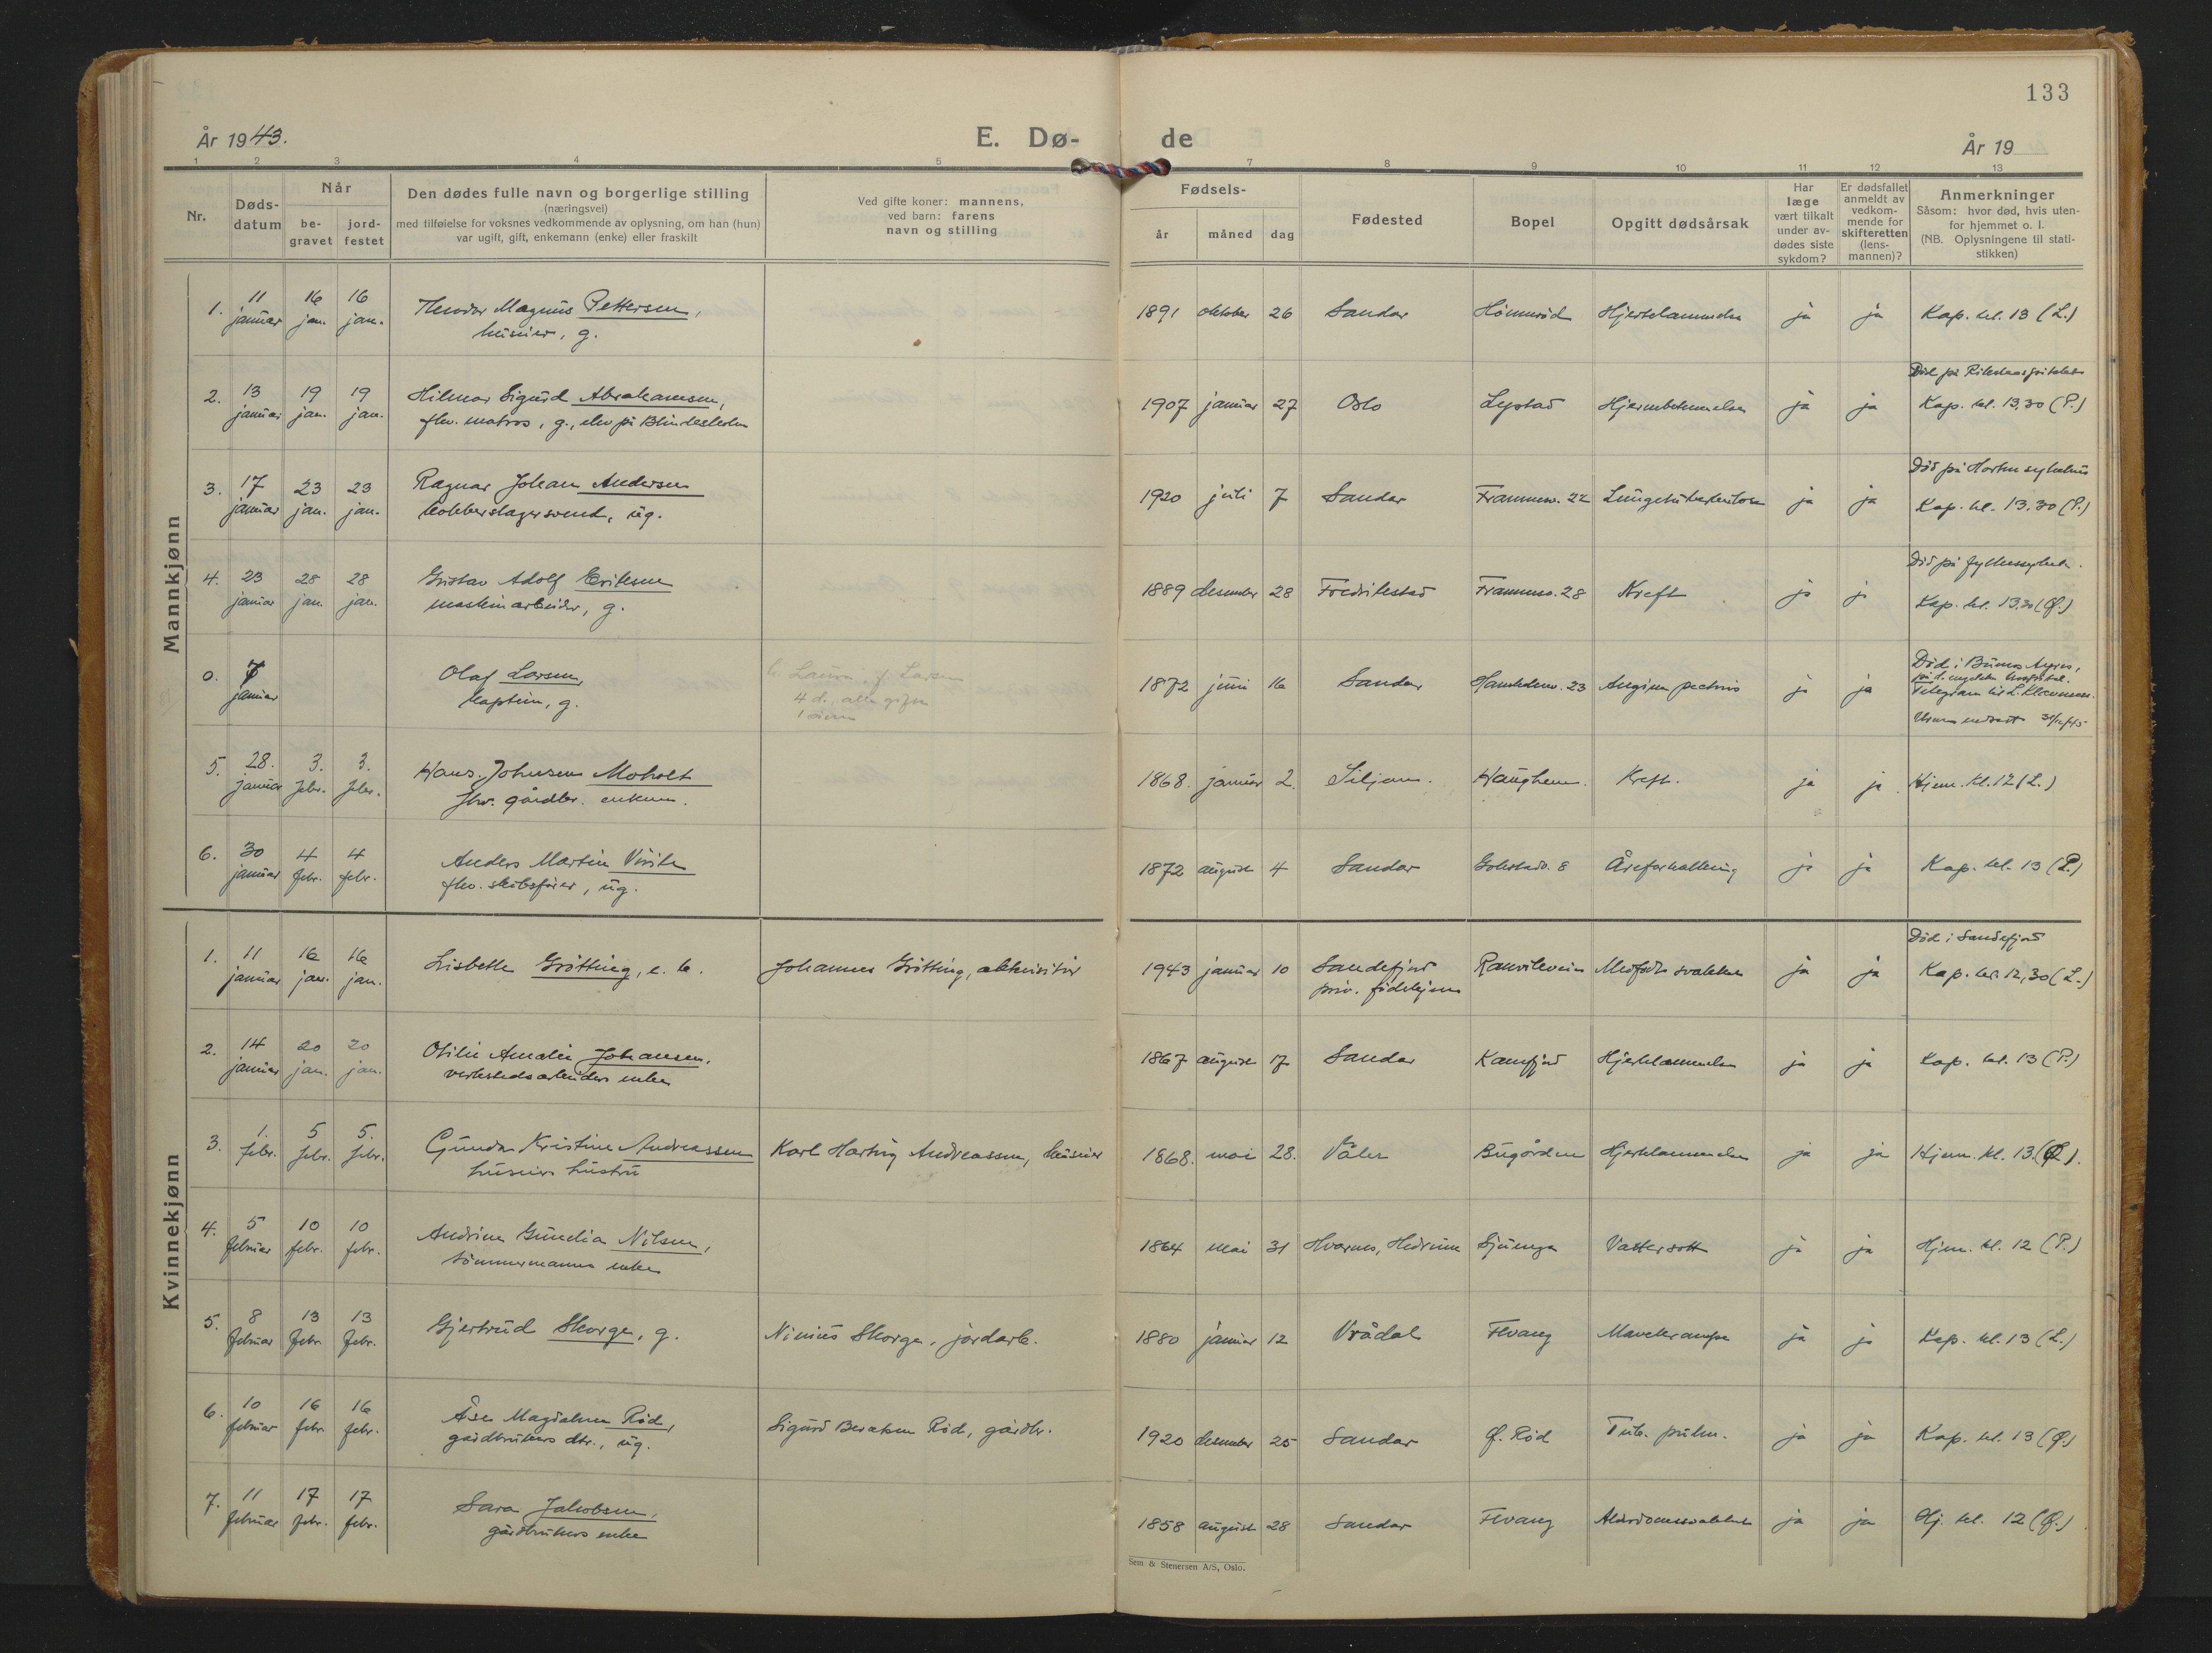 133
År 1943.
E. Dø-
de
År 19
1 2 3 4 5 7 8 9 10 11 12 13
Nr.
Døds-
datum
Når
be-
gravet
jord-
festet
Den dødes fulle navn og borgerlige stilling
(næringsvei)
med tilføielse for voksnes vedkommende av oplysning, om han (hun)
var ugift, gift, enkemann (enke) eller fraskilt
Ved gifte koner: mannens,
ved barn: farens
navn og stilling
Fødsels-
år måned dag
Fødested
Bopel
Opgitt dødsårsak
Har
læge
vært tilkalt
under av-
dødes siste
sykdom?
Er dødsfallet
anmeldt av
vedkom-
mende for
skifteretten
(lens-
mannen)?
Anmerkninger
Såsom: hvor død, hvis uten-
for hjemmet o. l.
(NB. Oplysningene til stati-
stikken)
Mannkjønn
1. 11 januar 16 jan. 16 jan. Theodor Magnus Pettersen,
huseier, g.
1891 oktober 26 Sandar Hjertelammelse ja ja Kap. kl. 13 (L.)
2. 13 januar 19 jan. 19 jan. Hilmar Sigurd Abrahamsen,
fhv. matros, g., elev på Blindeskolen
1907 januar 27 Oslo Hjernebetennelse ja ja Kap. kl. 13,30 (P.)
Død på Rikshospitalet
3. 17 januar 23 jan. 23 jan. Ragnar Johan Andersen
kobberslagersvend, ug.
1920 juli 7 Sandar Framnesv. 22 Lungetuberkulose ja ja
Død på Horten sykehus
Kap. kl. 13.30 (P.)
4. 23 januar 28 jan. 28 jan. Gustav Adolf Eriksen
maskinarbeider, g.
1889 desember 28 Fredrikstad Framnesv. 28 Kreft ja ja
Død på fylkessykeh.
Kap. kl. 13.30 (Ø.)
0. 7 januar Olaf Larsen,
kaptein, g.
4 d., alle gifte
1872 juni 16 Sandar 23 Angina pectoris ja ja
Død i Buenos Ayres,
på d. engelske hospital.
Telegram
Urnen nedsatt
5. 28. januar 3. febr. 3. febr. Hans Johnsen Moholt
fhv. gårdbr. enkem.
1868. januar 2. Siljan. Haughem. Kreft. ja ja. Hjem. kl. 12 (L.)
6. 30 januar 4 febr. 4 febr. Anders Martin Virik
fhv. skibsfører, ug.
1872 august 4 Sandar Gokstadv. 8 Åreforkalkning ja ja Kap. kl. 13 (P.)
Kvinnekjønn
1. 11 januar 16 jan. 16 jan. Lisbeth Grøtting, e. b. Johannes Grøtting, akkvisitør
1943 januar 10 Sandefjord
priv. fødehjem
Ranvikveien Medfødt svakhet ja ja
Død i Sandefjord
Kap. kl. 12,30 (L.)
2. 14 januar 20 jan. 20 jan. Otilie Amalie Johansen,
verkstedsarbeiders enke
1867 august 17 Sandar Kamfjord Hjertelammelse ja ja Kap. kl. 13 (P.)
3. 1. febr. 5 febr. 5. febr. Gunda Kristine Andreassen
huseiers hustru
Karl Hartvig Andreassen, huseier
1868. mai 28. Våler Bugården Hjertelammelse ja ja Hjem. kl. 13.
4. 5 februar 10 febr. 10 febr. Andrine Gunelia Nilsen,
tømmermanns enke
1864 mai 31 Hvarnes, Hedrum Vattersott ja ja Hjem. kl. 12 (P.)
5. 8 februar 13 febr. 13 febr. Gjertrud Skorge, g. Ninius Skorge, jordarb.
1880 januar 12 Vrådal Fevang Mavekrampe ja ja Kap. kl. 13 (L.)
6. 10 februar 16 febr. 16 febr. Åse Magdalene Rød,
gårdbrukers dtr., ug.
Sigurd Berntsen Rød, gårdbr.
1920 desember 25 Sandar Ø. Rød Tub. pulm. ja ja Kap. kl. 13 (Ø.)
7. 11 februar 17 febr. 17 febr. Sara Jakobsen,
gårdbrukers enke
1858 august 28 Sandar Fevang Alderdomssvakhet ja ja Hj. kl. 12 (Ø.)
Sem & Stenersen A/S, Oslo.